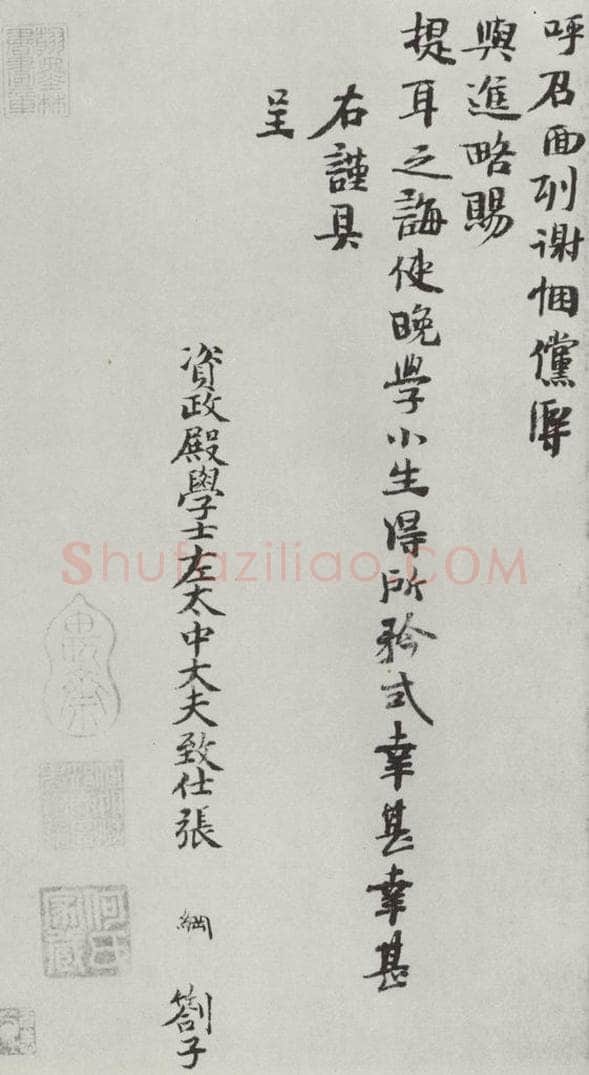 呼召面列謝悃儻辱
與進略賜
提耳之誨使晚學小生得所矜式幸甚幸甚
右謹具
呈
資政殿學士左太中大夫致仕張 綱 劄子
Shufaziliao.COM